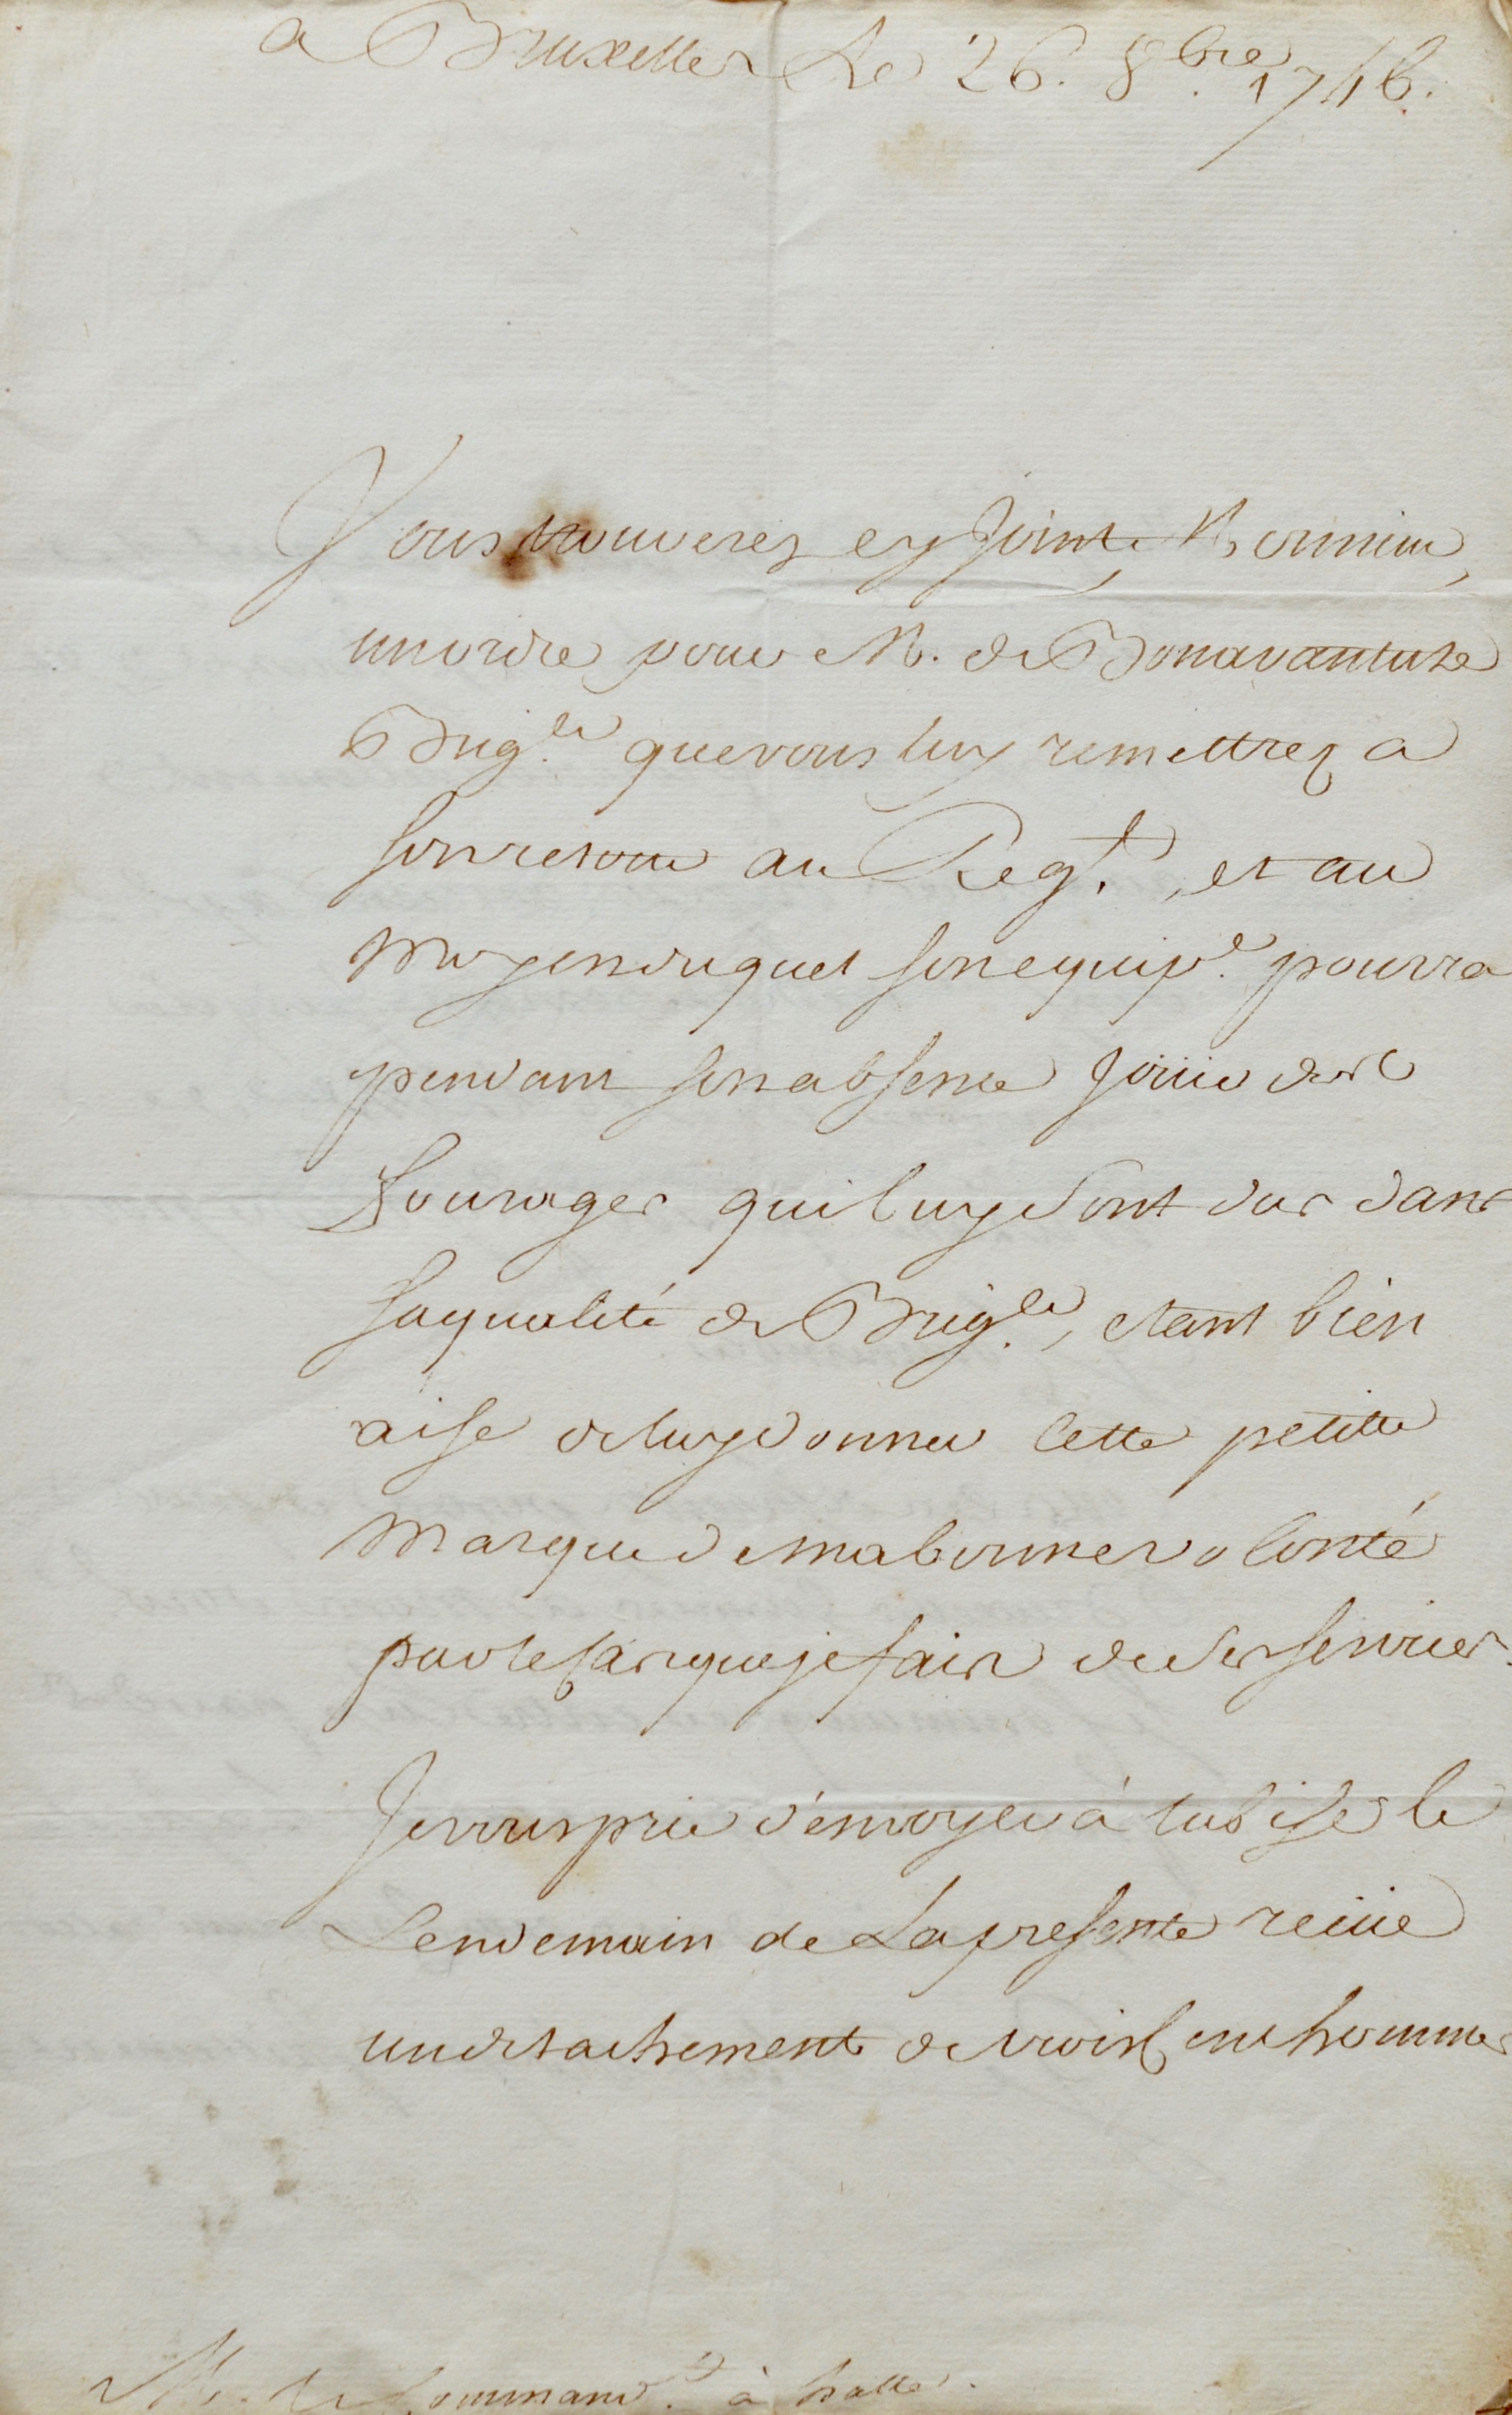 a Bruxelles Le 26. 8bre. 1746.
Vous trouverez cy Joint, Monsieur,
un ordre pour M. de Bonavanture
Brig.er que vous luy remettrez a
son retour au Reg.t, et au
moyen duquel son equip.e pourra
pendant son absence Joüir des
fourages qui luy sont dus dans
sa qualité de Brig.er, etant bien
aise de luy donner cette petitte
marque de ma bonne volonté
par le cas que je fais de ses services.
Je vous prie d'envoyer à tubise le
Lendemain de La presente reçüe
un detachement de trois cens hommes
M. le Command.t à halle.